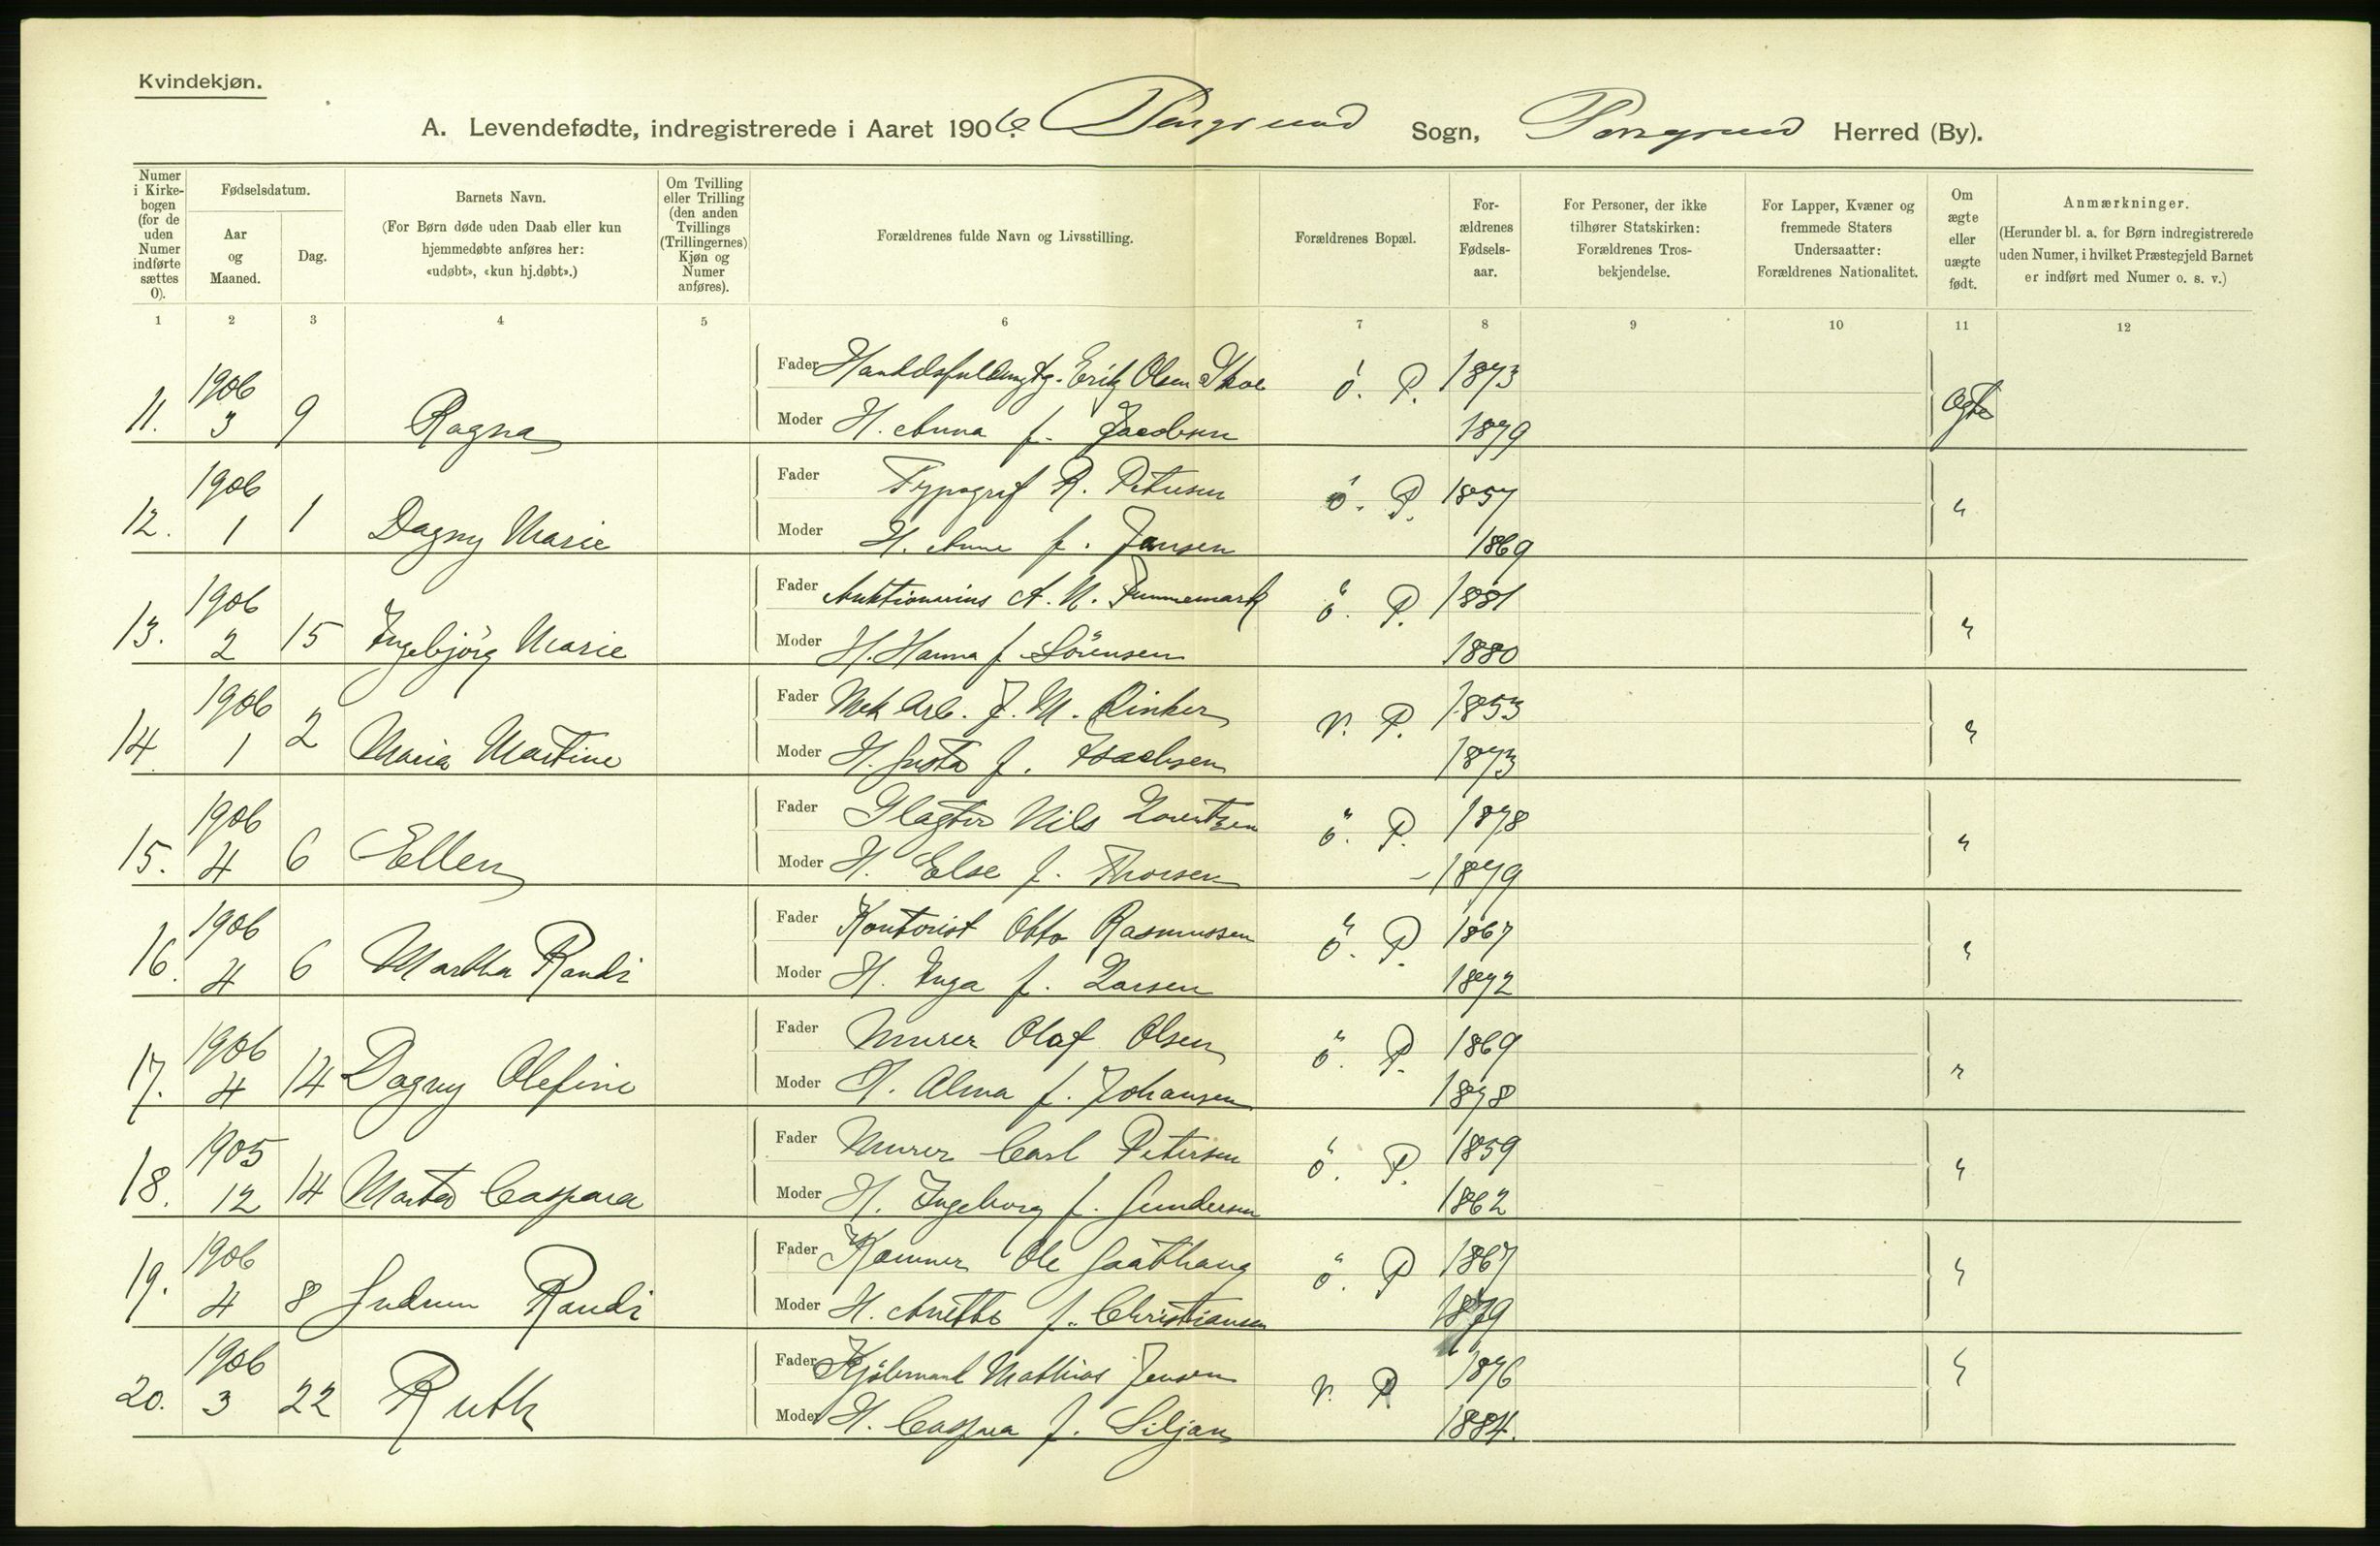 Kvindekjøn.
A. Levendefødte, indregistrerede i Aaret 1906. Porsgrund Sogn, Porsgrund Herred (By).
Numer i Kirkebogen (for de uden Numer indførte sættes 0).
Fødselsdatum.
Aar og Maaned.
Dag.
Barnets Navn.
(For Børn døde uden Daab eller kun hjemmedøbte anføres her: «udøbt», «kun hj.døbt».)
Om Tvilling eller Trilling (den anden Tvillings (Trillingernes) Kjøn og Numer anføres).
Forældrenes fulde Navn og Livsstilling.
Forældrenes Bopæl.
Forældrenes Fødselsaar.
For Personer, der ikke tilhører Statskirken: Forældrenes Trosbekjendelse.
For Lapper, Kvæner og fremmede Staters Undersaatter: Forældrenes Nationalitet.
Om ægte eller uægte født.
Anmærkninger.
(Herunder bl. a. for Børn indregistrerede uden Numer, i hvilket Præstegjeld Barnet er indført med Numer o. s. v.)
1 2 3 4 5 6 7 8 9 10 11 12
11. 1906 3 9 Ragna Fader Handelsfuldmgtg. Erik Olsen Skoe ö. P. 1873 Ægte
Moder H. Anna f. Jacobsen 1879
12. 1906 1 1 Dagny Marie Fader Typograf R. Petersen ö. P. 1857 "
Moder H. Anne f. Jansen 1869
13. 1906 2 15 Ingebjörg Marie Fader A. N. ö. P. 1881 "
Moder H. Hanna f. Sörensen 1880
14. 1906 1 2 Maria Martine Fader Mek Arb. J. M. Rinker V. P. 1853 "
Moder H. f. Isachsen 1873
15. 1906 4 6 Ellen Fader Slagter Nils Lorentzen ö. P. 1878 "
Moder H. Else f. Thorsen 1879
16. 1906 4 6 Martha Randi Fader Kontorist Otto Rasmussen ö. P. 1867 "
Moder H. Inga f. Larsen 1872
17. 1906 4 14 Dagny Olefine Fader Murer Olaf Olsen ö. P. 1869 "
Moder H. Alma f. Johansen 1878
18. 1905 12 14 Marta Caspara Fader Murer Carl Petersen ö. P. 1859 "
Moder H. Ingeborg f. Gundersen 1862
19. 1906 4 8 Gudrun Randi Fader Ole ö. P 1867 "
Moder H. Anette f. Christiansen 1879
20. 1906 3 22 Ruth Fader Kjöbmand Mathias Jensen V. P 1876 "
Moder H. Caspara f. Siljan 1884.